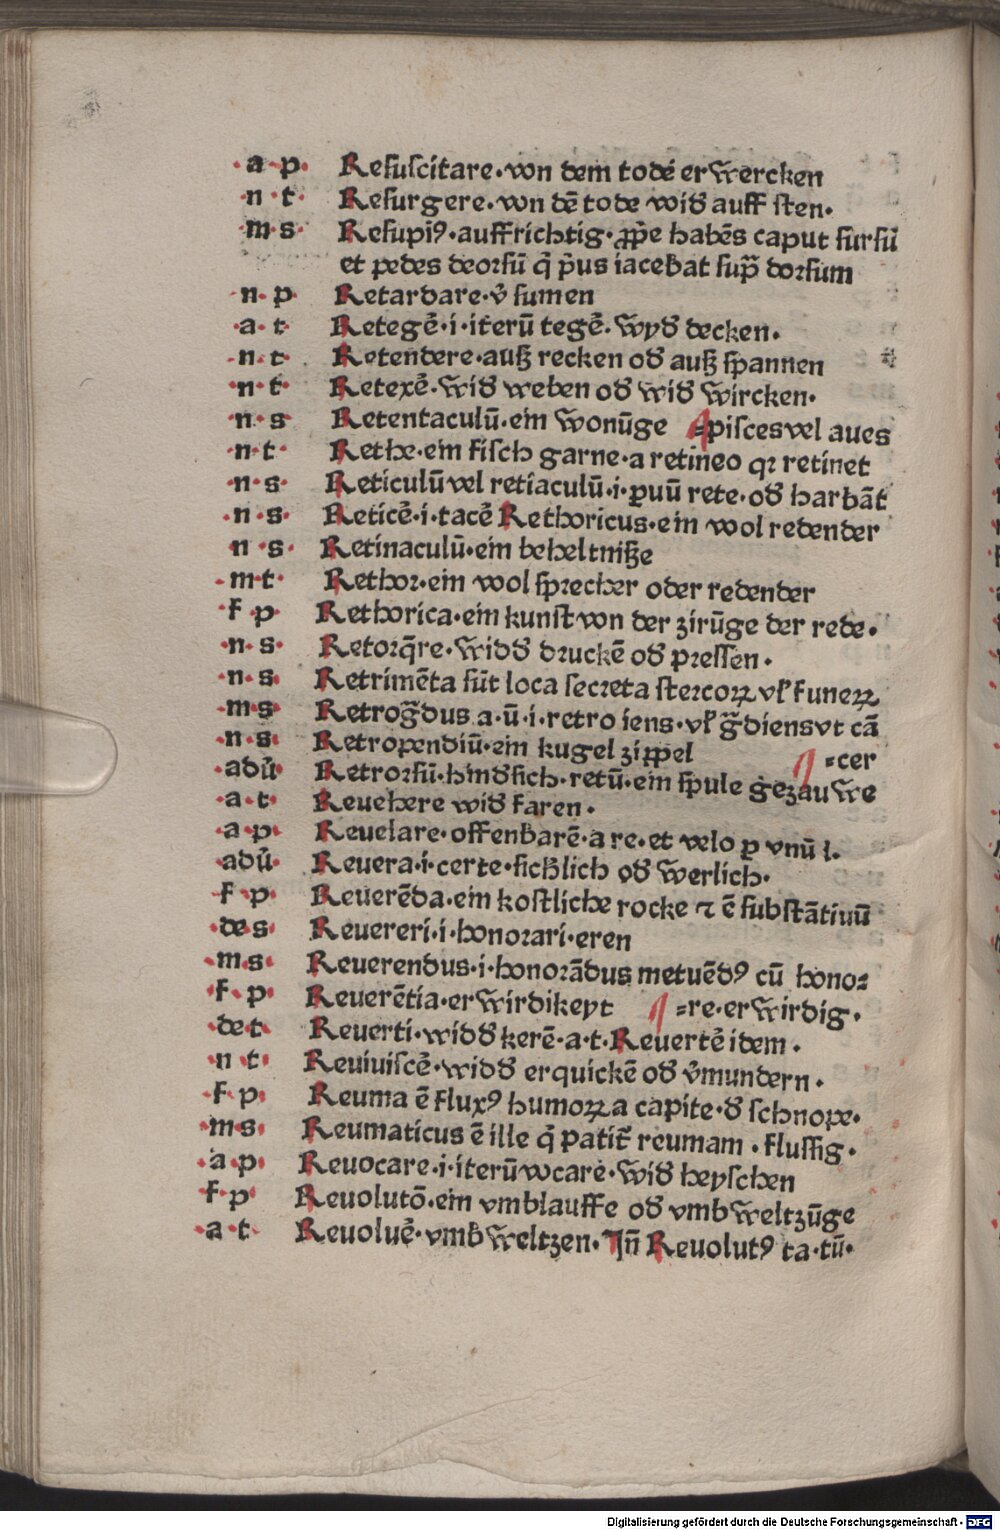 ·a·p· Resuscitare·von dem tode erwercken
·n·t· Resurgere·von dē tode wid̕ auff sten·
·m·s· Resupiꝰ·auffrichtig·ꝓp̄e habēs caput sursū
et pedes deorsū q̄ p̄us iacebat sup̄ dorsum
·n·p· Retardare·v̕ sumen
·a·t· Retegē·i·iterū tegē·wyd̕ decken·
·n·t· Retendere·auß recken od̕ auß spannen
·n·t· Retexē·wid̕ weben od̕ wid̕ wircken·
·n·s· Retentaculū·ein wonūge ¶ =pisces vel aues
·n·t· Rethe·ein fisch garne·a retineo qꝛ retinet
·n·s· Reticulū vel retiaculū·i·ꝑuū rete·od̕ harbāt
·n·s· Reticē·i·tacē Rethoricus·ein wol redender
·n·s· Retinaculū·ein beheltniße
·m·t· Rethor·ein wol sprecher oder redender
·f·p· Rethorica·ein kunst von der zirūge der rede·
·n·s· Retorq̄re·widd̕ druckē od̕ pressen·
·n·s· Retrimēta sūt loca secreta stercoꝝ vl̕ funeꝝ
·m·s· Retrog̃dus a·ū·i·retro iens·vl̕ g̃diens vt cā
·n·s· Retropendiū·ein kugel zippel ¶ =cer
·adū· Retrorsū·hindsich·retū·ein spule gezauwe
·a·t· Reuehere wid̕ faren·
·a·p· Reuelare·offenbarē·a re·et velo ꝑ vnū l·
·adū· Reuera·i·certe·sich̕lich od̕ werlich·
·f·p· Reuerēda·ein kostliche rocke ⁊ ē substātiuū
·de·s· Reuereri·i·honorari·eren
·m·s· Reuerendus·i·honorādus metuēdꝰ cū hono=
·f·p· Reuerētia·erwirdikeyt ¶ =re·erwirdig·
·de·t· Reuerti·widd̕ kerē·a·t·Reuertē idem·
·n·t· Reuiuiscē·widd̕ erquickē od̕ v̕mundern·
·f·p· Reuma ē fluxꝰ humoꝝ a capite·d̕ schnope·
·m·s· Reumaticus ē ille q̄ patit̕ reumam·flussig·
·a·p· Reuocare·i·iterū vocarē·wid̕ heyschen
·f·p· Reuolutō·ein vmblauffe od̕ vmbweltzūge
·a·t· Reuoluē·vmbweltzen·Jn̄ Reuolutꝰ ta·tū·
Digitalisierung gefördert durch die Deutsche Forschungsgemeinschaft - DFG